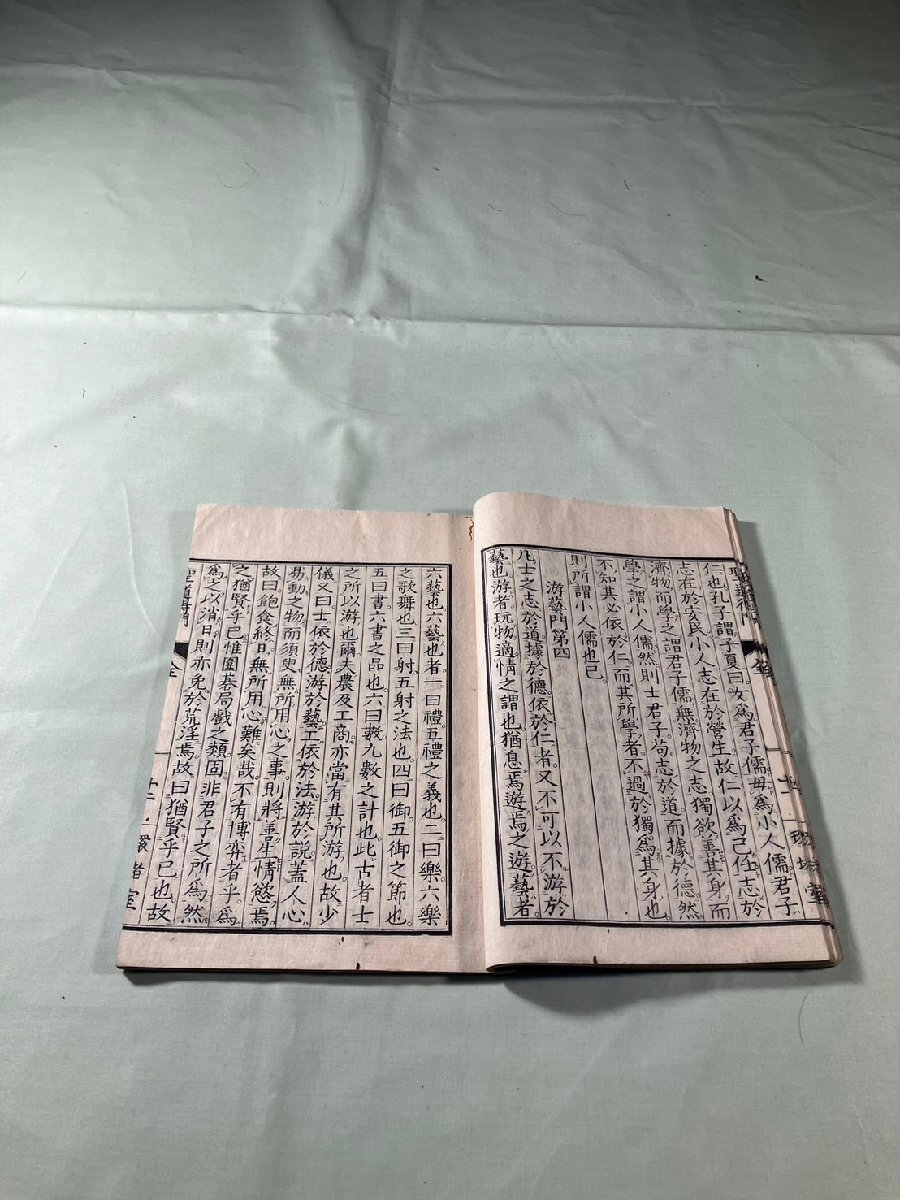 仁也孔子謂子夏曰女爲君子儒毋爲小人儒君子
志在於安民小人志在於營生故仁以爲己任志於
濟物而學之謂君子儒無濟物之志獨欲善其身而
學之謂小人儒然則士君子尚志於道而據於德然
不知其必依於仁而其所學者不過於獨爲其身也
則所謂小人儒也已
游藝門第四
凡士之志於道據於德依於仁者又不可以不游於
藝也游者玩物適情之謂也猶息焉遊焉之遊藝者
六藝也六藝也者一曰禮五禮之義也二曰樂六樂
之歌舞也三曰射五射之法也四曰御五御之節也
五曰書六書之品也六曰數九數之計也此古者士
之所以游也爾夫農及工商亦當有其所游也故少
儀又曰士依於德游於藝工依於法游於說蓋人心
易動之物而須臾無所用心之事則將至星情慾焉
故曰飽食終日無所用心難矣哉不有博奕者乎爲
之猶賢乎已惟圍棊局戲之類固非君子之所爲然
爲之以消日則亦免於荒淫焉故曰猶賢乎已也故
聖道得門
全
十二